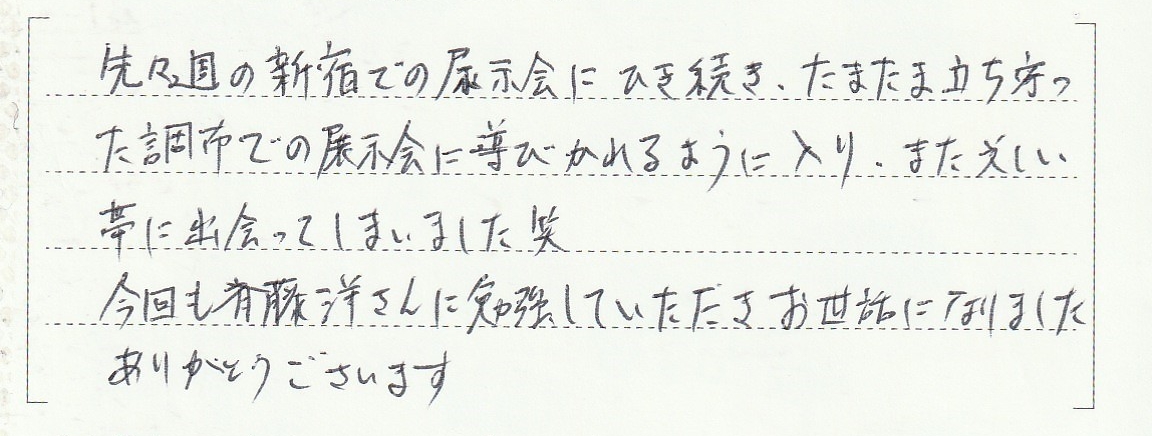 先々週の新宿での展示会にひき続き、たまたま立ち寄っ
た調布での展示会に導びかれるように入り、また美しい
帯に出会ってしまいました笑
今回も斉藤洋さんに勉強していただきお世話になりました
ありがとうございます